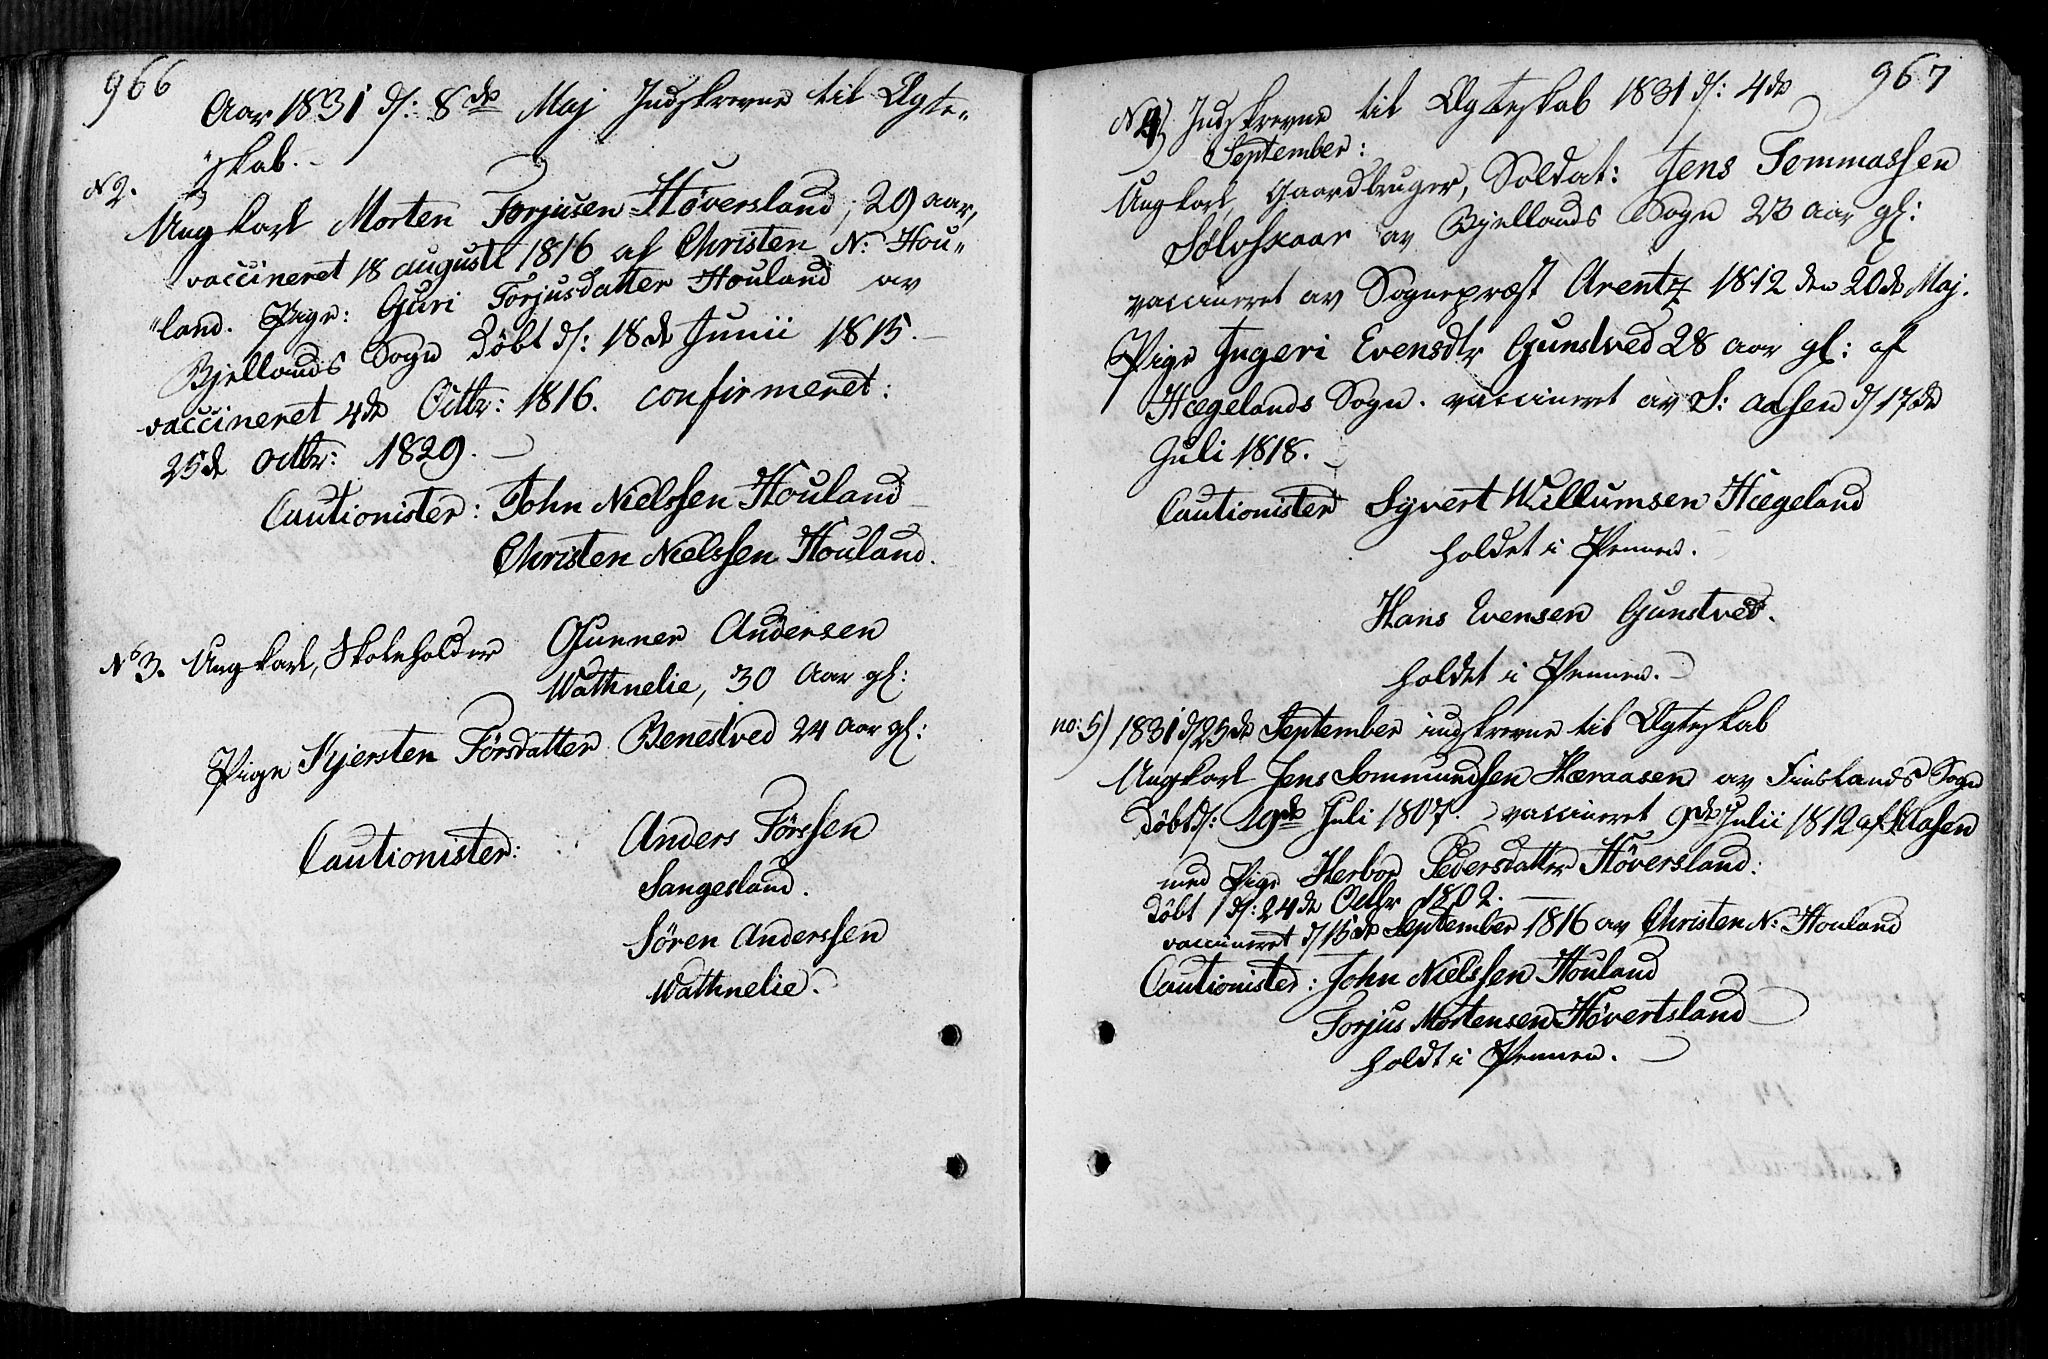 966
Aar 1831 d: 8de Maj Indskrevne til Ægte„
„skab.
N2.
Ungkarl Morten Torjusen Höversland, 29 aar,
vaccineret 18 augusti 1816 af Christen N: Hou„
„land. Pige: Guri Torjusdatter Houland av
Bjellands Sogn Döbt d: 18de Junii 1815.
vaccineret 4de Octbr: 1816. confirmeret:
25de octbr: 1829.
Cautionister: John Nielssen Houland
Christen Nielssen Houland.
No 3. Ungkarl, Skoleholder Gunner Andersen
Wathnelie, 30 Aar gl:
Pige Kjersten Törsdatter Benestved 24 Aar gl:
Cautionister: Anders Törssen
Sangesland.
Sören Anderssen
Wathnelie.
967
N 4) Indskrevne til Ægteskab 1831 d: 4de
September:
Ungkarl, Gaardbruger, Soldat: Jens Tommassen
Sölvskaar av Bjellands Sogn 23 Aar gl:
vaccineret av Sognepræst Arentz 1812 den 20de Maj.
Pige Ingeri Evensdtr Gunstved 28 aar gl: af
Hægelands Sogn. vaccineret av S: Aasen d 17de
Juli 1818.
Cautionister Syvert Willumsen Hægeland
holdet i Pennen.
Hans Evensen Gunstved.
holdet i Pennen.
no: 5) 1831 d 25de September indskrevne til Ægteskab
Ungkarl Jens Sommundsen Hæraasen av Finslands Sogn
Döbt d: 19de Juli 1807. vaccineret 9de Julii 1812 af
med Pige Herbor Pedersdatter Höversland:
Döbt d: 24de Octbr 1802.
vaccineret d 15de September 1816 av Christen N: Houland
Cautionister: John Nielssen Houland
Torjus Mortensen Hövertsland
holdt i Pennen.